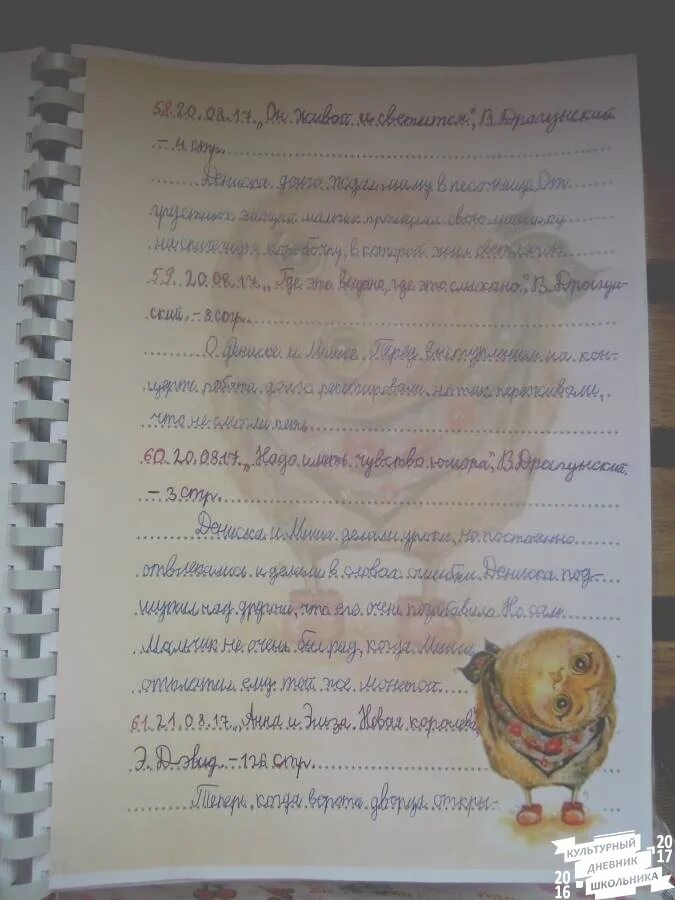 58. 20.08.17. „Он живой и светится", В. Драгунский
– 4 стр.
Дениска долго ждал маму в песочнице. От
грустных эмоций мальчик променял свою машинку
на спичечную коробочку, в которой жил светлячок.
59. 20.08.17. „Где это видано, где это слыхано", В. Драгун-
ский. – 8 стр.
О Дениске и Мишке. Перед выступлением на кон-
церте ребята долго репетировали, но так переживали,
что не смогли петь.
60. 20.08.17. „Надо иметь чувство юмора", В. Драгунский,
– 3 стр.
Дениска и Миша делали уроки, но постоянно
отвлекались и делали в словах ошибки. Дениска под-
шутил над другом, что его очень позабавило. Но сам
мальчик не очень был рад, когда Миша
отплатил ему той же монетой.
61. 21.08.17. „Анна и Эльза. Новая королева",
Э. Дэвид. – 126 стр.
Теперь, когда ворота дворца откры-
КУЛЬТУРНЫЙ
ДНЕВНИК
ШКОЛЬНИКА
2016
2017